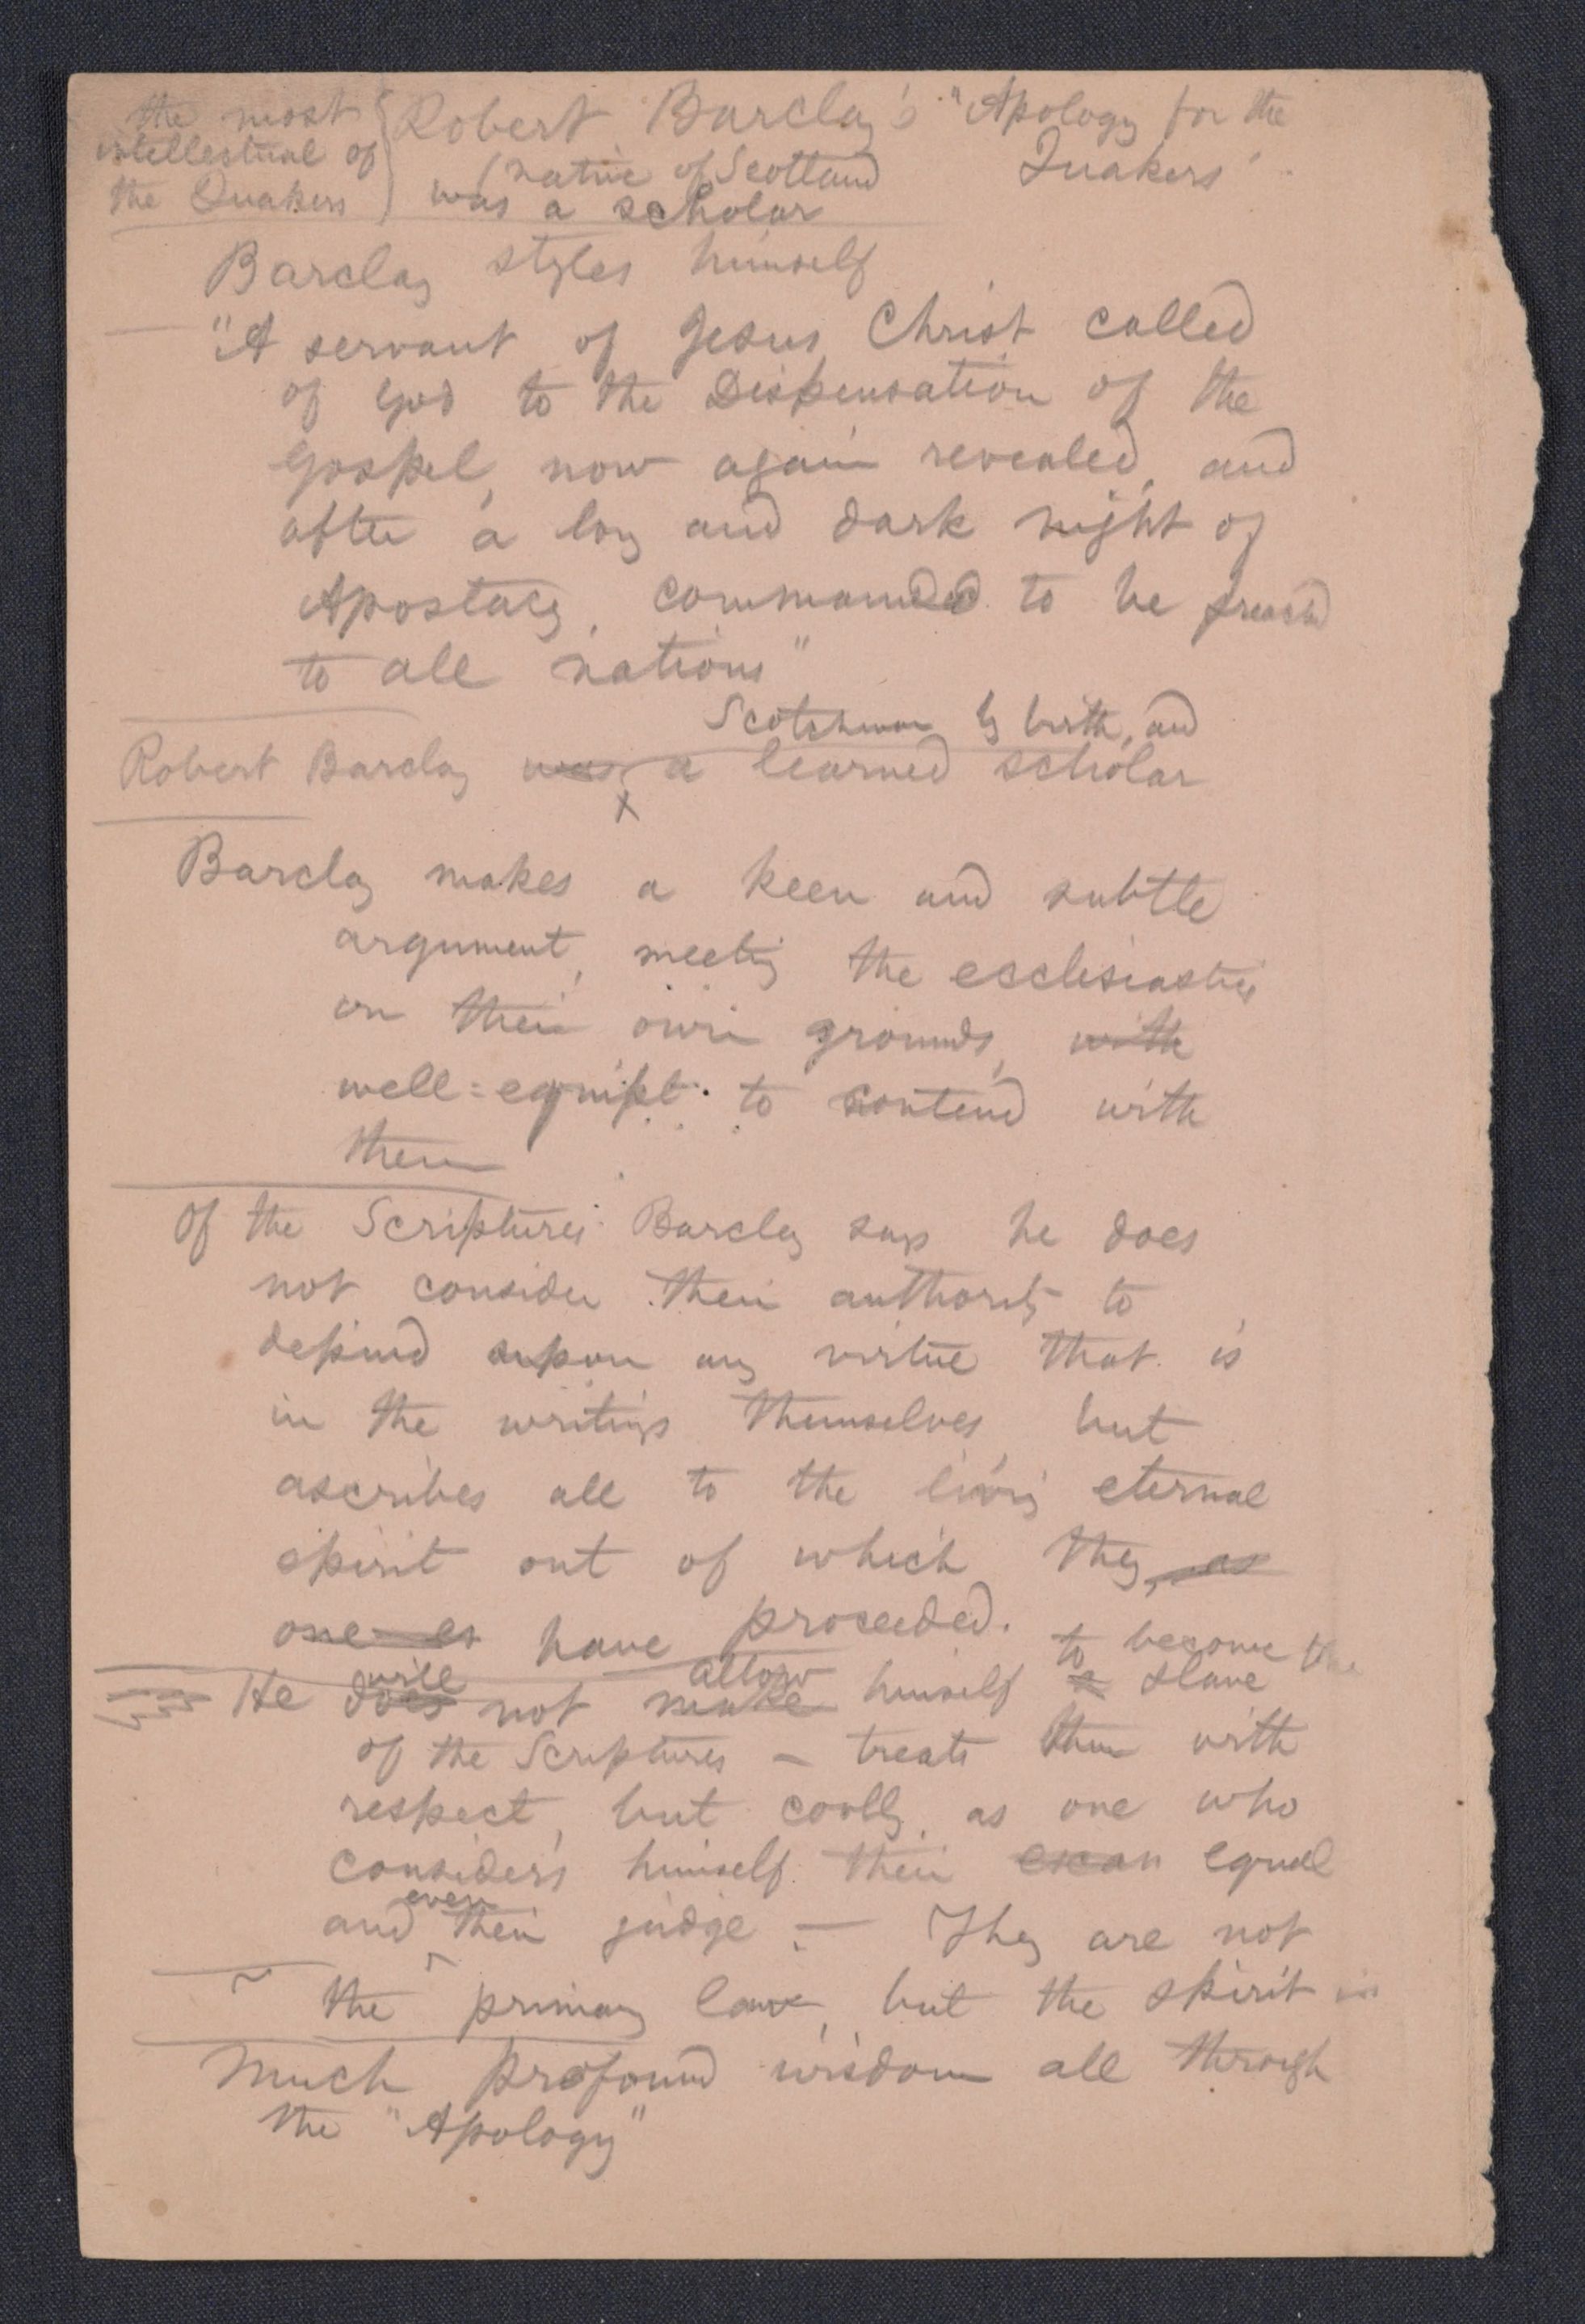 the most
intellectual of
the Quakers
Robert Barclay's "Apology for the
Quakers"
(native of Scotland
was a scholar
Barclay styles himself
"A servant of Jesus Christ called
of God to the Dispensation of the
Gospel, now again revealed, and
after a long and dark night of
Apostacy, commanded to be preachd
to all nations"
Scotchman by birth, and
Robert Barclay was a learned scholar
x
Barclay makes a keen and subtle
argument, meeting the ecclesiastics
on their own grounds, with
well=equipt to contend with
them
Of the Scriptures Barclay says he does
not consider their authority to
depend upon any virtue that is
in the writings themselves, but
ascribes all to the living eternal
spirit out of which they, as
one es have proceeded.
to become the
will allow
He does not make himself a slave
of the Scriptures – treats them with
respect, but coolly, as one who
considers himself their equal
even
and their judge – They are not
the primary law, but the spirit is
Much profound wisdom all through
the "Apology"